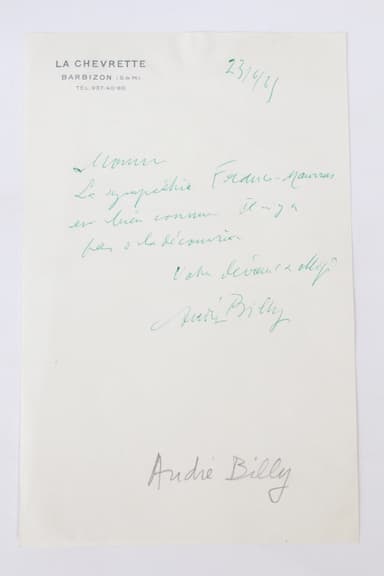 LA CHEVRETTE
BARBIZON (S&M)
TEL. 937-40-90
Monsieur
La sympathie France-Maurras
est bien connue Il n'y a
pas à la découvrir
Votre dévoué
André Billy
André Billy